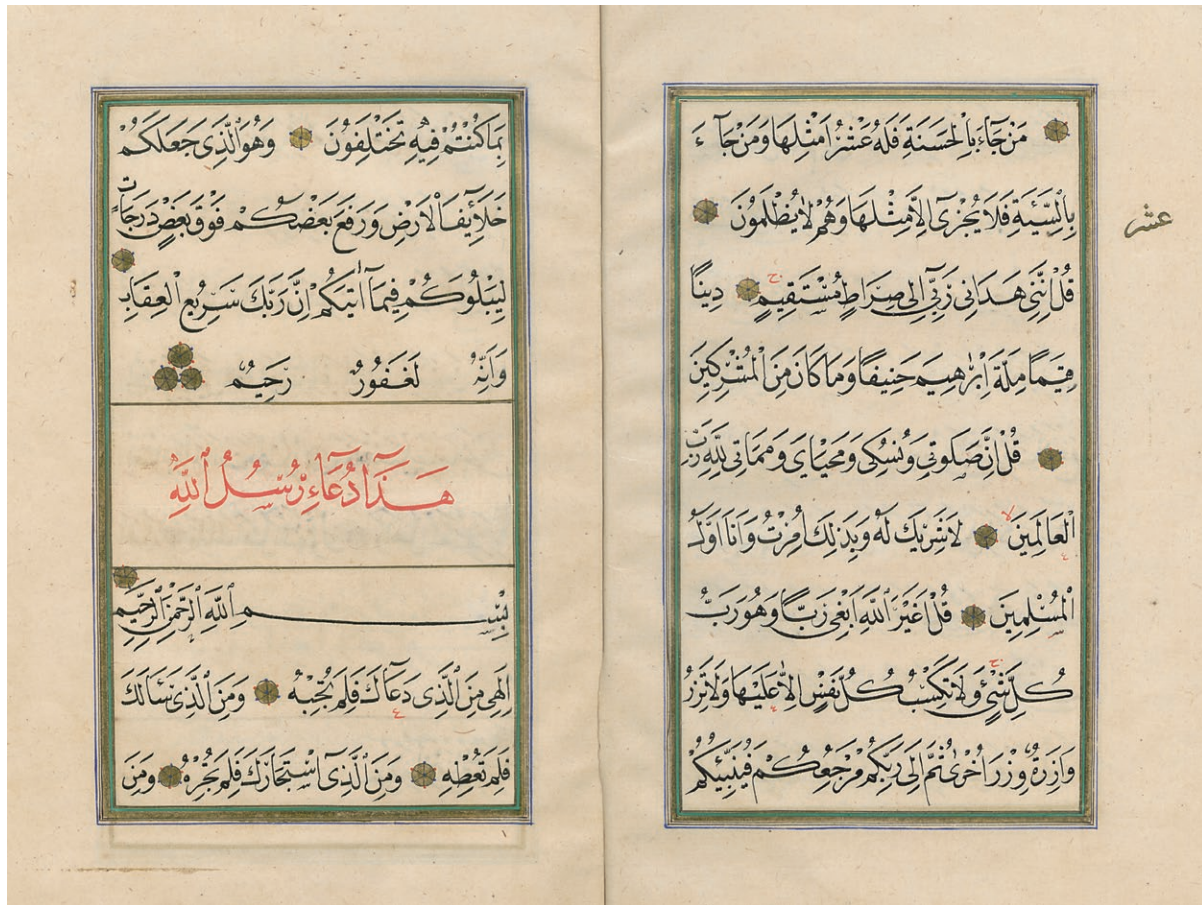 مَنْ جَاءَ بِالْحَسَنَةِ فَلَهُ عَشْرُ اَمْثَالِهَا وَمَنْ جَاءَ
بِالسَّيِّئَةِ فَلَا يُجْزٰى اِلَّا مِثْلَهَا وَهُمْ لَا يُظْلَمُونَ
عشر
قُلْ اِنَّنِي هَدَانِي رَبِّي اِلٰى صِرَاطٍ مُسْتَقِيمٍ دِينًا
قِيَمًا مِلَّةَ اِبْرٰهِيمَ حَنِيفًا وَمَا كَانَ مِنَ الْمُشْرِكِينَ
قُلْ اِنَّ صَلَوتِي وَنُسُكِي وَمَحْيَايَ وَمَمَاتِي لِلّٰهِ رَبِّ
الْعَالَمِينَ لَا شَرِيكَ لَهُ وَبِذٰلِكَ اُمِرْتُ وَاَنَا اَوَّلُ
الْمُسْلِمِينَ قُلْ اَغَيْرَ اللّٰهِ اَبْغِي رَبًّا وَهُوَ رَبُّ
كُلِّ شَيْءٍ وَلَا تَكْسِبُ كُلُّ نَفْسٍ اِلَّا عَلَيْهَا وَلَا تَزِرُ
وَازِرَةٌ وِزْرَ اُخْرٰى ثُمَّ اِلٰى رَبِّكُمْ مَرْجِعُكُمْ فَيُنَبِّئُكُمْ
بِمَا كُنْتُمْ فِيهِ تَخْتَلِفُونَ وَهُوَ الَّذِي جَعَلَكُمْ
خَلَائِفَ الْاَرْضِ وَرَفَعَ بَعْضَكُمْ فَوْقَ بَعْضٍ دَرَجَاتٍ
لِيَبْلُوَكُمْ فِيمَا اٰتٰيكُمْ اِنَّ رَبَّكَ سَرِيعُ الْعِقَابِ
وَاِنَّهُ لَغَفُورٌ رَحِيمٌ
هَذَا دُعَاءِ رُسُلُ اللّٰهِ
بِسْمِ اللّٰهِ الرَّحْمٰنِ الرَّحِيمِ
اِلٰهِي مَنِ الَّذِي دَعَاكَ فَلَمْ تُجِبْهُ وَمَنِ الَّذِي سَئَالَكَ
فَلَمْ تُعْطِهِ وَمَنِ الَّذِي اسْتَجَارَكَ فَلَمْ تُجِرْهُ وَمَنِ